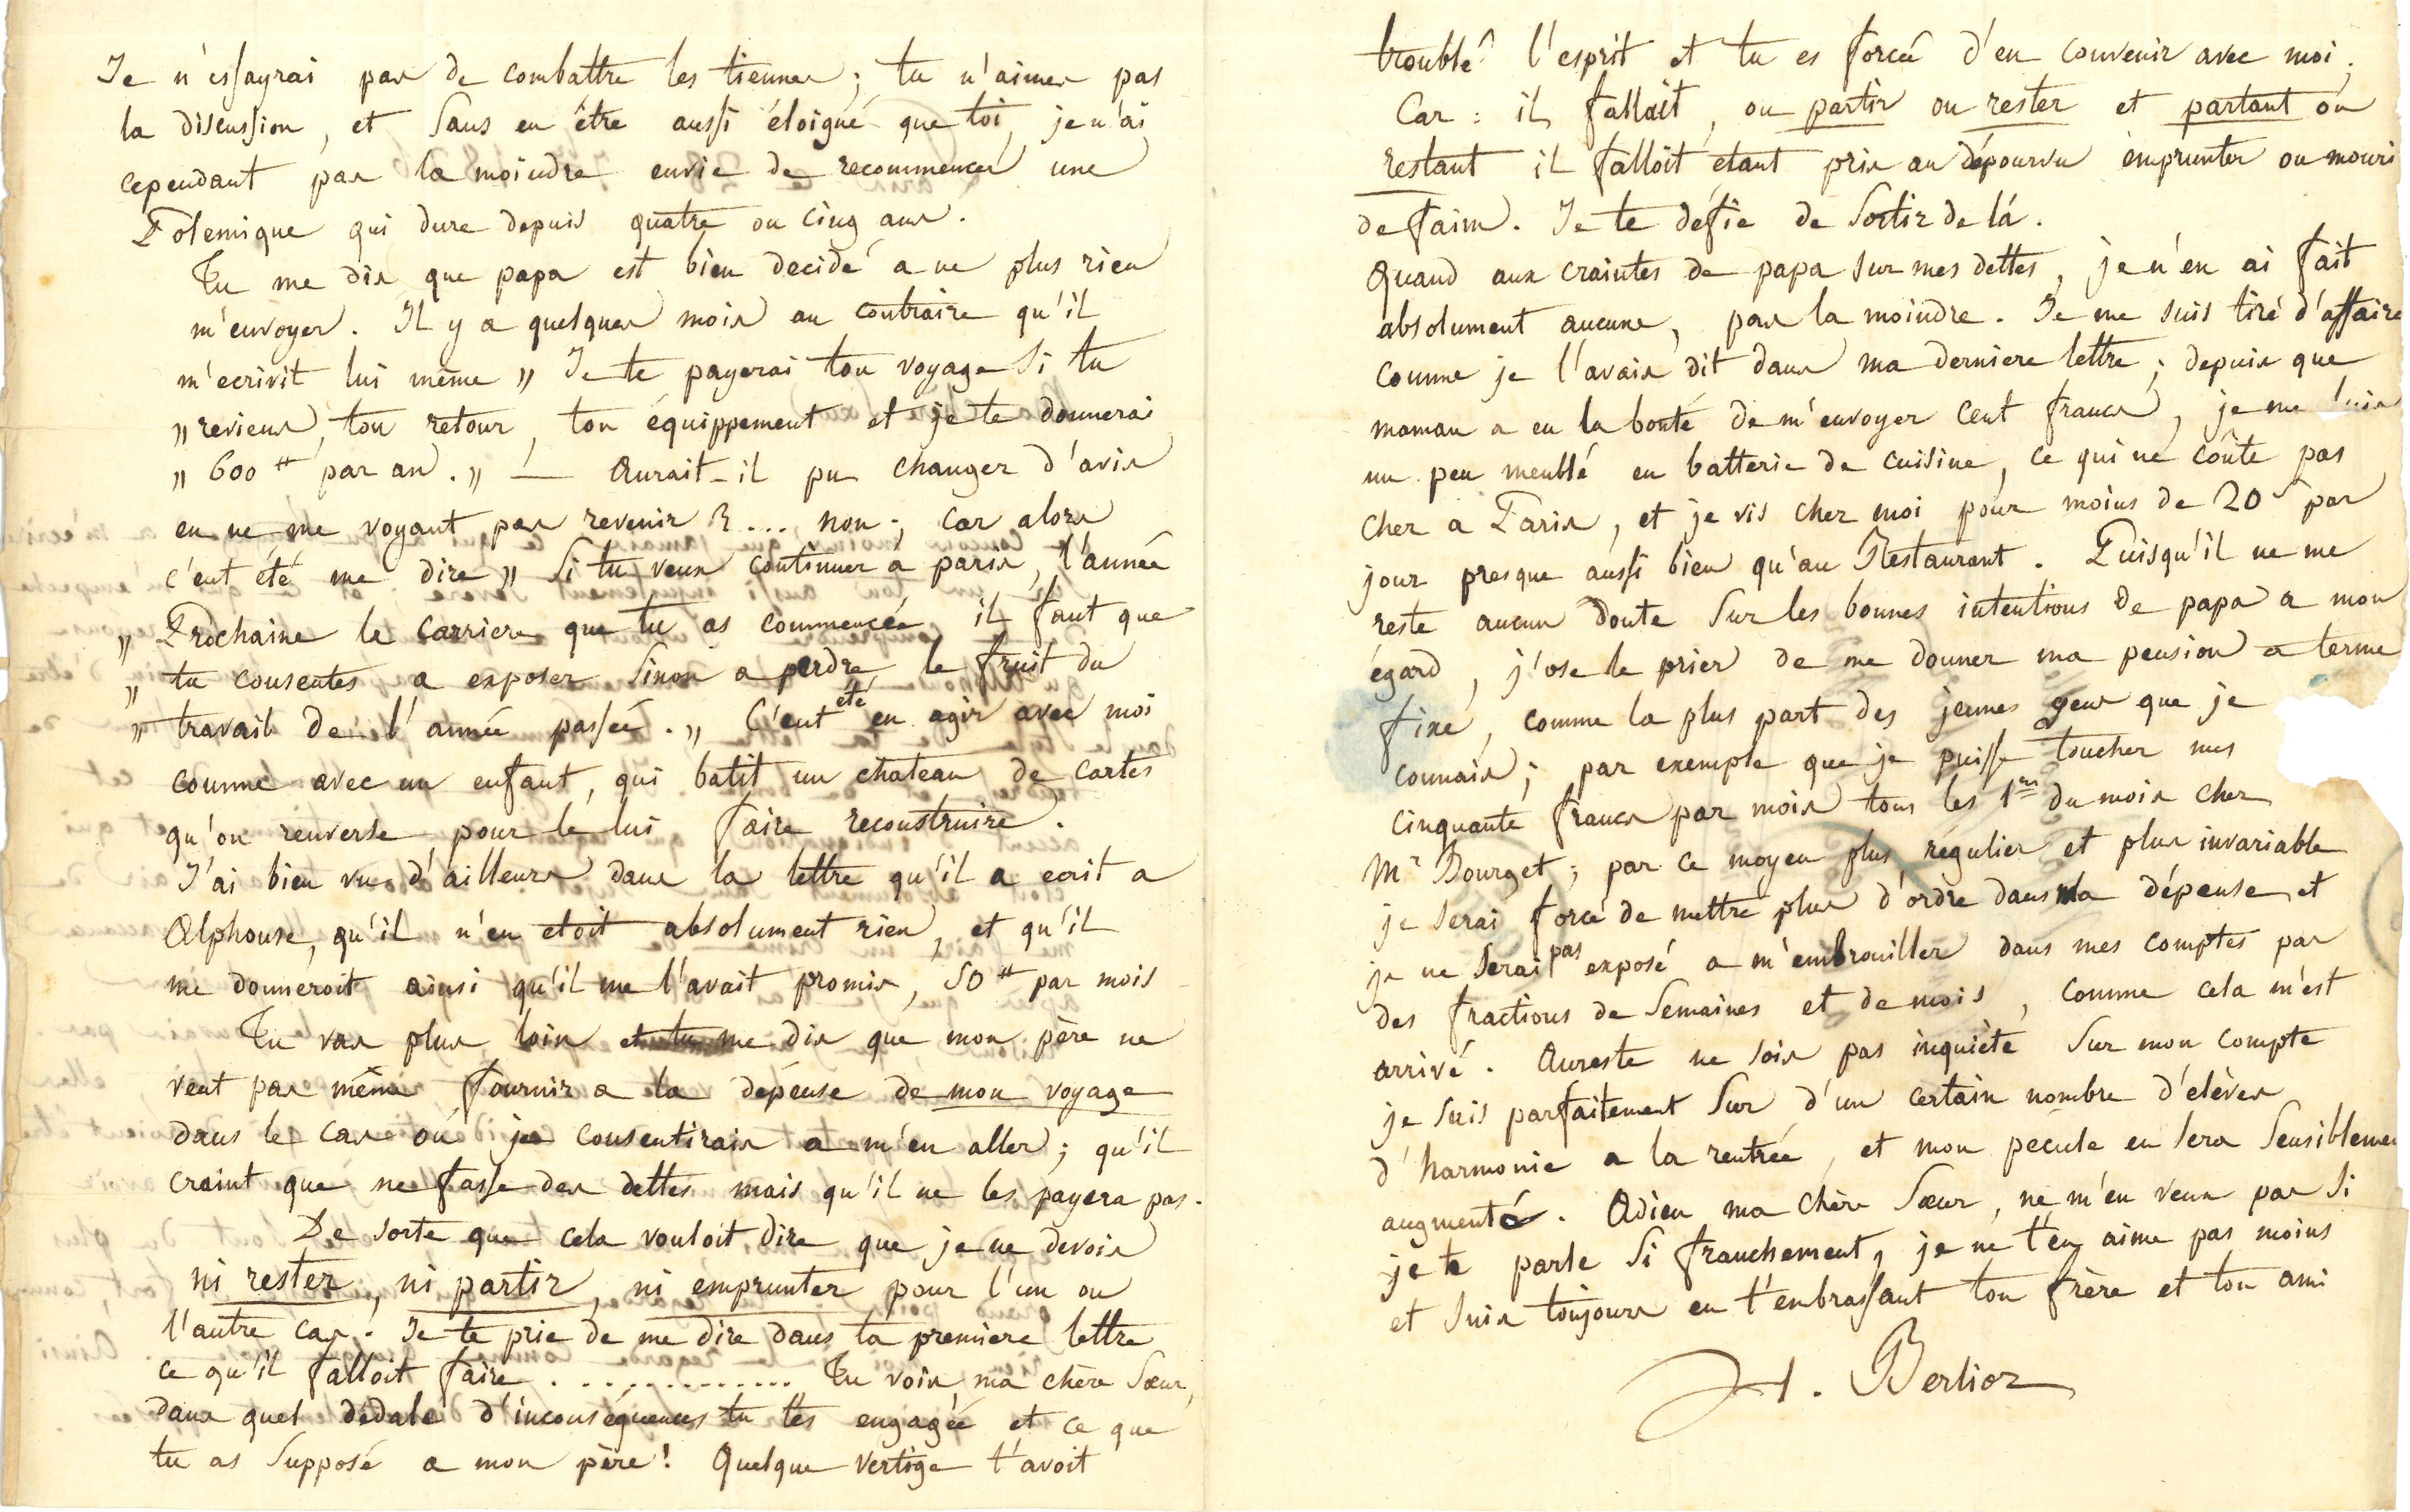 Je n'essayrai pas de combattre les tiennes; tu n'aimes pas
la discussion, et sans en être aussi éloigné que toi, je n'ai
cependant pas la moindre envie de recommencer une
Polemique qui dure depuis quatre ou cinq ans.
Tu me dis que papa est bien decidé a ne plus rien
m'envoyer. Il y a quelques mois au contraire qu'il
m'ecrivit lui même " Je te payerai ton voyage si tu
" reviens, ton retour, ton équippement et je te donnerai
" 600 ₶ par an. " — Aurait-il pu changer d'avis
en ne me voyant pas revenir ?... non; car alors
c'eut été me dire " Si tu veux continuer à paris, l'année
" Prochaine la carriere que tu as commencée il faut que
" tu consentes a exposer sinon a perdre le fruit du
" travail de l'année passée. " C'eut été en agir avec moi
comme avec un enfant, qui batit un chateau de cartes
qu'on renverse pour le lui faire reconstruire.
J'ai bien vu d'ailleurs dans la lettre qu'il a ecrit a
Alphonse, qu'il n'en etoit absolument rien, et qu'il
me donneroit ainsi qu'il me l'avait promis, 50 ₶ par mois
Tu vas plus loin et tu me dis que mon père ne
veut pas même fournir a la dépense de mon voyage
dans le cas où je consentirais a m'en aller; qu'il
craint que ne fasse des dettes mais qu'il ne les payera pas.
De sorte que cela vouloit dire que je ne devois
ni rester, ni partir, ni emprunter pour l'un ou
l'autre cas. Je te prie de me dire dans ta premiere lettre
ce qu'il falloit faire . . . . . . . . . . . . . Tu vois, ma chère sœur,
dans quel dédale d'inconséquences tu t'es engagée et ce que
tu as supposé a mon père! Quelque vertige t'avoit
troublé l'esprit et tu es forcée d'en convenir avec moi.
Car : il fallait, ou partir ou rester et partant ou
restant il falloit étant pris au dépourvu emprunter ou mouri
de faim. Je te défie de sortir de là.
Quand aux craintes de papa sur mes dettes, je n'en ai fait
absolument aucune, pas la moindre. Je me suis tiré d'affaire
comme je l'avais dit dans ma derniere lettre; depuis que
maman a eu la bonté de m'envoyer cent francs, je me suis
un peu meublé en batterie de cuisine, ce qui ne coûte pas
cher a Paris, et je vis chez moi pour moins de 20 s par
jour presque aussi bien qu'au Restaurant. Puisqu'il ne me
reste aucun doute sur les bonnes intentions de papa a mon
égard, j'ose le prier de me donner ma pension a terme
fixe, comme la plus part des jeunes gens que je
connais; par exemple que je puisse toucher mes
cinquante francs par mois tous les 1ers du mois chez
Mr Bourget; par ce moyen plus régulier et plus invariable
je serai forcé de mettre plus d'ordre dans ma dépense et
je ne serai pas exposé a m'embrouiller dans mes comptes par
des fractions de semaines et de mois, comme cela m'est
arrivé. Aureste ne sois pas inquiète sur mon compte
je suis parfaitement sur d'un certain nombre d'elèves
d'harmonie a la rentrée, et mon pecule en sera sensiblemen
augmenté. Adieu ma chère sœur, ne m'en veux pas si
je te parle si franchement, je ne t'en aime pas moins
et suis toujours en t'enbrassant ton frère et ton ami
H. Berlioz